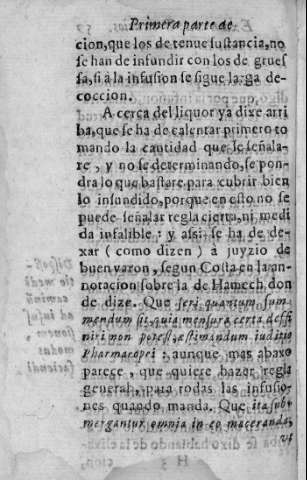 Primera parte de
cion, que los de tenue sustancia, no
se han de infundir con los de grues
sa, si à la infusion se sigue larga de-
coccion.
A cerca del liquor ya dixe arri
ba, que se ha de calentar primero to
mando la cantidad que se señala-
re, y no se determinando, se pon-
dra lo que bastare para cubrir bien
lo infundido, porque en esto no se
puede señalar regla cierta, ni medi
da infalible: y assi se ha de de-
xar (como dizen) à juyzio de
buen varon, segun Costa en la an-
notacion sobre la de Hamech, don
de dize. Que seri quantum sum-
mendum sit, quia mensura certa deffi
niri non potest, æstimandum iuditio
Pharmacopei: aunque mas abaxo
parece, que quiere hazer regla
general, para todas las infusio-
nes quando manda. Que ita sub-
mergantur omnia in eo maceranda,
vt